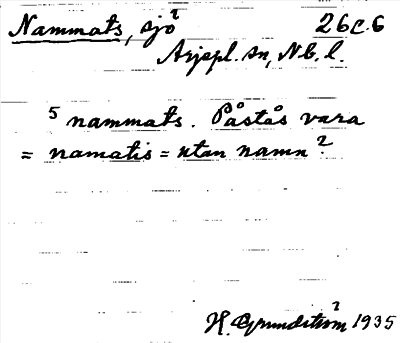 Nammats, sjö 26C.6
Arjepl. sn, Nb. l.
5 nammats. Påstås vara
= namatis = utan namn?
H. Grundström 1935